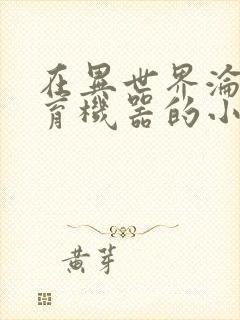 在異世界淪
育機器的小
黃芽